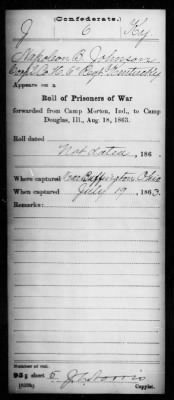 (Confederate.)
J 6 Ky
Napoleon B. Johnson
Corpl Co. H, 6 Reg't Kentucky
Appears on a
Roll of Prisoners of War
forwarded from Camp Morton, Ind., to Camp
Douglas, Ill., Aug. 18, 1863.
Roll dated
Not dated, 186
Where captured Near Buffington, Ohio
When captured July 19, 1863.
Remarks:
Number of roll:
sheet 5
Copyist.